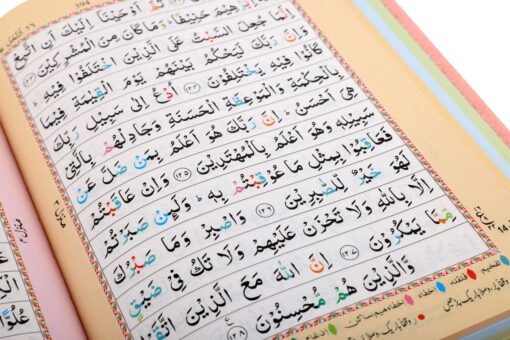 اَوْحَيْنَاۤ اِلَيْكَ اَنِ اتَّبِعْ
حَنِيْفًا ؕ وَمَا كَانَ مِنَ الْمُشْرِكِيْنَ ﴿۱۲۳﴾
اِنَّمَا جُعِلَ السَّبْتُ عَلَى الَّذِيْنَ اخْتَلَفُوْا فِيْهِ ؕ
وَاِنَّ رَبَّكَ لَيَحْكُمُ بَيْنَهُمْ يَوْمَ الْقِيٰمَةِ فِيْمَا
كَانُوْا فِيْهِ يَخْتَلِفُوْنَ ﴿۱۲۴﴾ اُدْعُ اِلٰى سَبِيْلِ رَبِّكَ
بِالْحِكْمَةِ وَالْمَوْعِظَةِ الْحَسَنَةِ وَجَادِلْهُمْ بِالَّتِيْ
هِيَ اَحْسَنُ ؕ اِنَّ رَبَّكَ هُوَ اَعْلَمُ بِمَنْ ضَلَّ عَنْ
سَبِيْلِهٖ وَهُوَ اَعْلَمُ بِالْمُهْتَدِيْنَ ﴿۱۲۵﴾ وَاِنْ عَاقَبْتُمْ
فَعَاقِبُوْا بِمِثْلِ مَا عُوْقِبْتُمْ بِهٖ ؕ وَلَئِنْ صَبَرْتُمْ
لَهُوَ خَيْرٌ لِّلصّٰبِرِيْنَ ﴿۱۲۶﴾ وَاصْبِرْ وَمَا صَبْرُكَ
اِلَّا بِاللّٰهِ وَلَا تَحْزَنْ عَلَيْهِمْ وَلَا تَكُ فِيْ ضَيْقٍ
مِّمَّا يَمْكُرُوْنَ ﴿۱۲۷﴾ اِنَّ اللّٰهَ مَعَ الَّذِيْنَ اتَّقَوْا
وَّالَّذِيْنَ هُمْ مُّحْسِنُوْنَ ﴿۱۲۸﴾